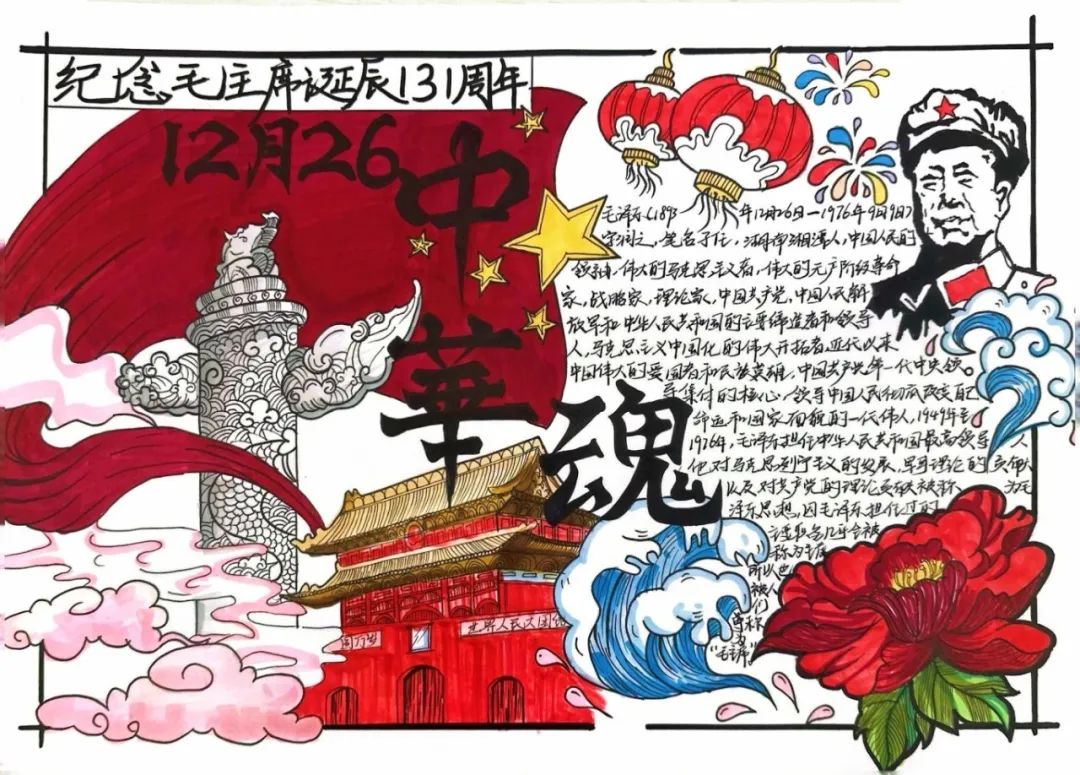 纪念毛主席诞辰131周年
12月26
中
華
魂
毛泽东(1893年12月26日—1976年9月9日)
字润之，笔名子任，湖南湘潭人，中国人民的
领袖，伟大的马克思主义者，伟大的无产阶级革命
家，战略家，理论家，中国共产党，中国人民解
放军和中华人民共和国的主要缔造者和领导
人，马克思主义中国化的伟大开拓者，近代以来
中国伟大的爱国者和民族英雄，中国共产党第一代中央领
导集体的核心，领导中国人民彻底改变自己
命运和国家面貌的一代伟人，1949年至
1976年，毛泽东担任中华人民共和国最高领导人
他对马克思列宁主义的发展，军事理论的贡献
以及对共产党的理论贡献被称为毛
泽东思想，因毛泽东担任过的
主要职务几乎全被
称为主席
所以也
被人
们
尊称
为
"毛主席"
国万岁
世界人民大团结